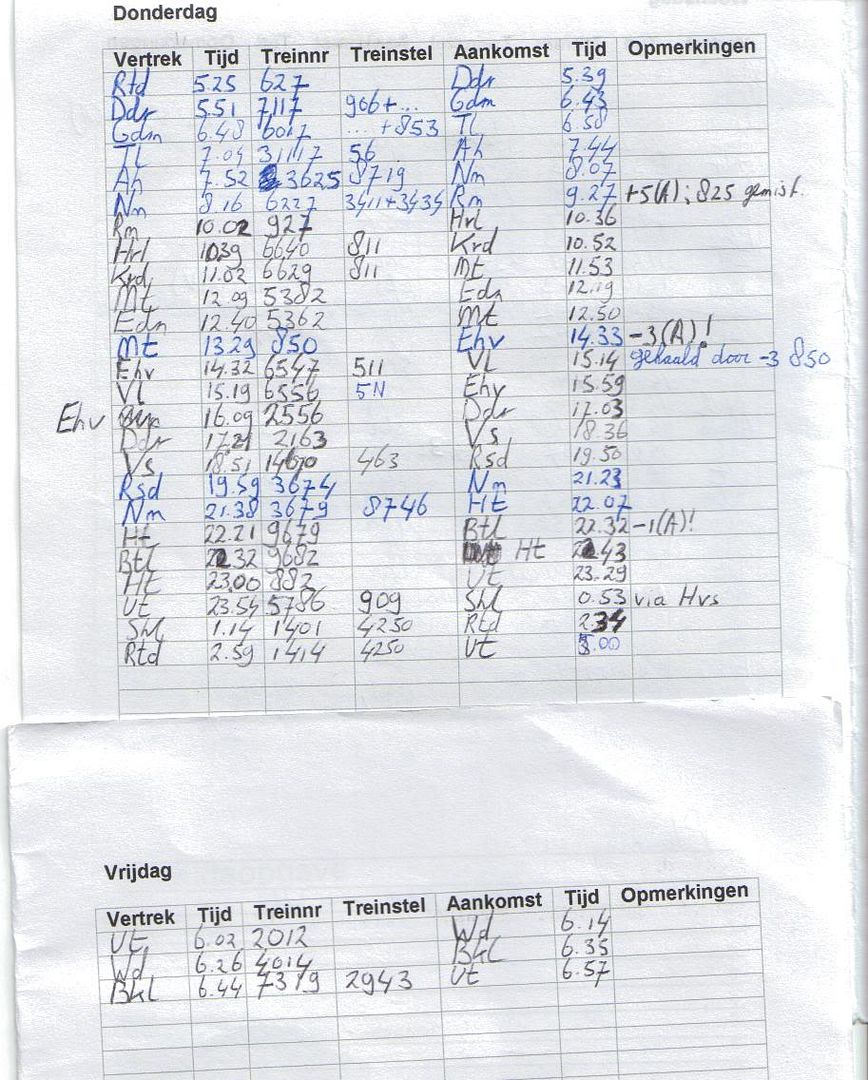 Donderdag
Vertrek Tijd Treinnr Treinstel Aankomst Tijd Opmerkingen
Rtd 5.25 627 Ddr 5.39
Ddr 5.51 7117 906+... Gdm 6.43
Gdm 6.48 6017 ...+853 Tl 6.58
Tl 7.04 31117 56 Ah 7.44
Ah 7.52 3625 8719 Nm 8.07
Nm 8.16 6227 3411+3434 Rm 9.27 +5(A); 825 gemist.
Rm 10.02 927 Hrl 10.36
Hrl 1039 6640 811 Krd 10.52
Krd 11.02 6629 811 Mt 11.53
Mt 12.09 5382 Edn 12.19
Edn 12.40 5362 Mt 12.50
Mt 13.29 850 Ehv 14.33 -3(A)!
Ehv 14.32 6547 511 Vl 15.14 gehaald door -3 850
Vl 15.19 6556 5N Ehv 15.59
Ehv 16.09 2556 Ddr 17.03
Ddr 17.21 2163 Vs 18.36
Vs 18.51 14670 463 Rsd 19.50
Rsd 19.59 3674 Nm 21.23
Nm 21.38 3679 8746 Ht 22.07
Ht 22.21 9679 Btl 22.32 -1(A)!
Btl 2232 9682 Ht 2243
Ht 23.00 882 Ut 23.29
Ut 23.54 5786 909 Shl 0.53 via Hvs
Shl 1.14 1401 4250 Rtd 2.34
Rtd 2.59 1414 4250 Ut
Vrijdag
Vertrek Tijd Treinnr Treinstel Aankomst Tijd Opmerkingen
Ut 6.02 2012 Wd 6.14
Wd 6.26 4014 Bkl 6.35
Bkl 6.44 7319 2943 Ut 6.57